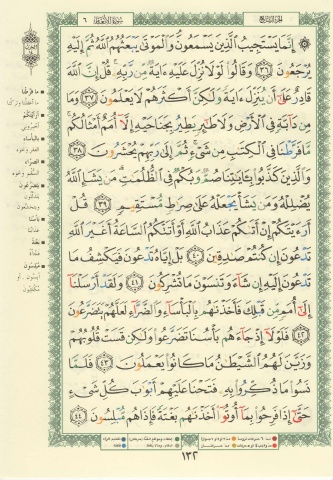 الجزء السابع
سورة الأنعام ٦
۞ إِنَّمَا يَسْتَجِيبُ الَّذِينَ يَسْمَعُونَ وَالْمَوْتَىٰ يَبْعَثُهُمُ اللَّهُ ثُمَّ إِلَيْهِ
يُرْجَعُونَ ٣٦ وَقَالُوا لَوْلَا نُزِّلَ عَلَيْهِ ءَايَةٌ مِّن رَّبِّهِ قُلْ إِنَّ اللَّهَ
قَادِرٌ عَلَىٰ أَن يُنَزِّلَ ءَايَةً وَلَٰكِنَّ أَكْثَرَهُمْ لَا يَعْلَمُونَ ٣٧ وَمَا
مِن دَابَّةٍ فِي الْأَرْضِ وَلَا طَٰئِرٍ يَطِيرُ بِجَنَاحَيْهِ إِلَّا أُمَمٌ أَمْثَالُكُم
مَّا فَرَّطْنَا فِي الْكِتَٰبِ مِن شَيْءٍ ثُمَّ إِلَىٰ رَبِّهِمْ يُحْشَرُونَ ٣٨
وَالَّذِينَ كَذَّبُوا بِـَٔايَٰتِنَا صُمٌّ وَبُكْمٌ فِي الظُّلُمَٰتِ مَن يَشَإِ اللَّهُ
يُضْلِلْهُ وَمَن يَشَأْ يَجْعَلْهُ عَلَىٰ صِرَٰطٍ مُّسْتَقِيمٍ ٣٩ قُلْ
أَرَءَيْتَكُمْ إِنْ أَتَىٰكُمْ عَذَابُ اللَّهِ أَوْ أَتَتْكُمُ السَّاعَةُ أَغَيْرَ اللَّهِ
تَدْعُونَ إِن كُنتُمْ صَٰدِقِينَ ٤٠ بَلْ إِيَّاهُ تَدْعُونَ فَيَكْشِفُ مَا
تَدْعُونَ إِلَيْهِ إِن شَاءَ وَتَنسَوْنَ مَا تُشْرِكُونَ ٤١ وَلَقَدْ أَرْسَلْنَا
إِلَىٰ أُمَمٍ مِّن قَبْلِكَ فَأَخَذْنَٰهُم بِالْبَأْسَاءِ وَالضَّرَّاءِ لَعَلَّهُمْ يَتَضَرَّعُونَ
٤٢ فَلَوْلَا إِذْ جَاءَهُم بَأْسُنَا تَضَرَّعُوا وَلَٰكِن قَسَتْ قُلُوبُهُمْ
وَزَيَّنَ لَهُمُ الشَّيْطَٰنُ مَا كَانُوا يَعْمَلُونَ ٤٣ فَلَمَّا
نَسُوا مَا ذُكِّرُوا بِهِ فَتَحْنَا عَلَيْهِمْ أَبْوَٰبَ كُلِّ شَيْءٍ
حَتَّىٰ إِذَا فَرِحُوا بِمَا أُوتُوا أَخَذْنَٰهُم بَغْتَةً فَإِذَا هُم مُّبْلِسُونَ ٤٤
ما فرّطنا
أرأيتكم
أخبروني
بالبأساء
الضراء
يتضرّعون
بأسنا
عذابنا
بغتة
فجأة
مبلسون
١٣٢